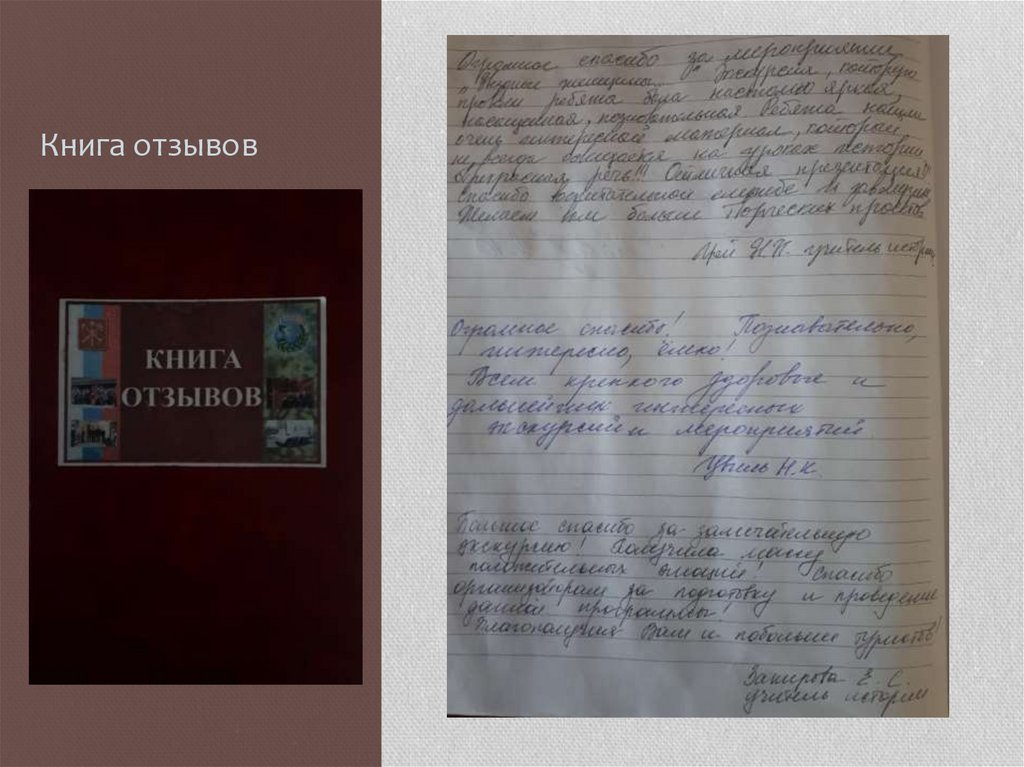 Книга отзывов
КНИГА
ОТЗЫВОВ
Огромное спасибо за мероприятие
женщины" Экскурсия, которую
провели ребята была настолько яркая,
насыщенная, познавательная. Ребята нашли
очень интересный материал, который
не всегда на уроках истории
Прекрасная речь!!! Отличная презентация!!!
спасибо воспитательной службе и
Желаем им больше творческих проектов
учитель истории
Огромное спасибо! Познавательно,
интересно, ёмко!
Всем крепкого здоровья и
дальнейших интересных
экскурсий и мероприятий.
Н.К.
Большое спасибо за замечательную
экскурсию! Получила массу
положительных эмоций! Спасибо
организаторам за подготовку и проведение
данной программы!
Благополучия Вам и побольше туристов!
Закирова Е.С.
учитель истории